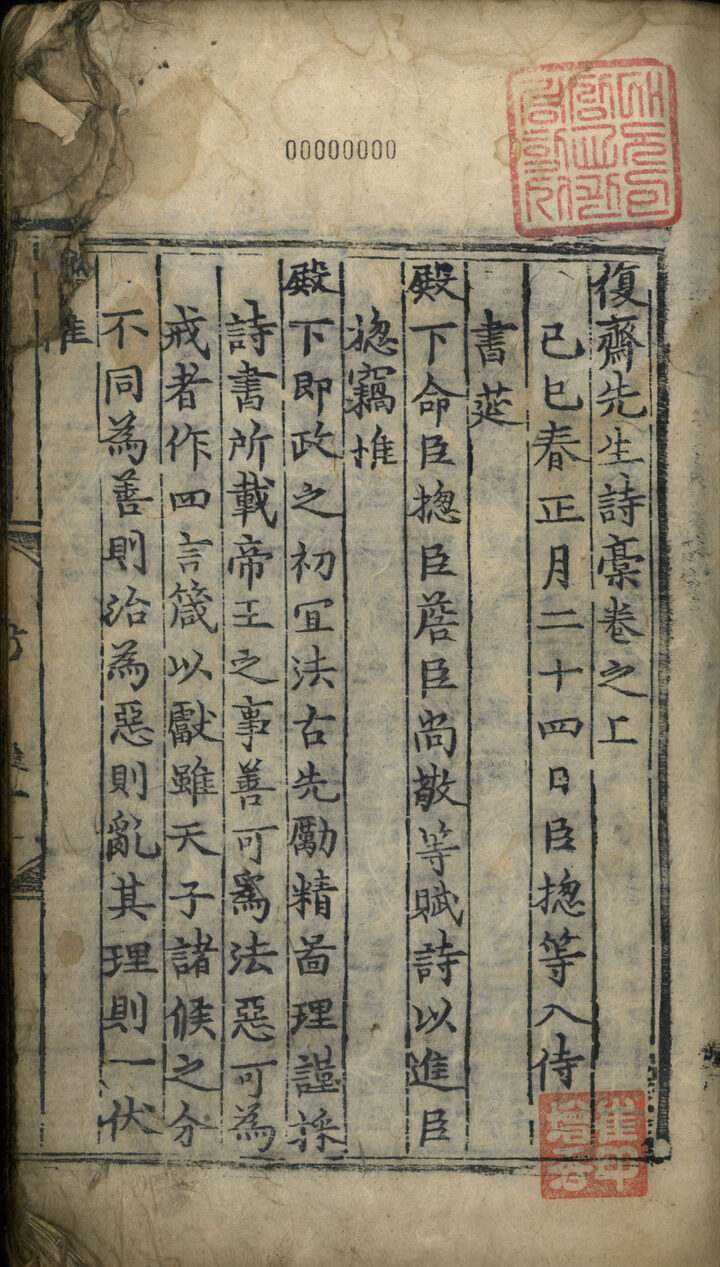 00000000
復齋先生詩藁卷之上
己巳春正月二十四日臣摠等入侍
書莚
殿下命臣摠臣蓎臣尚敬等賦詩以進臣
摠竊惟
殿下即政之初冝法古先勵精啚理謹採
詩書所載帝王之事善可爲法惡可為
戒者作四言箴以獻雖天子諸侯之分
不同為善則治為惡則亂其理則一伏
惟